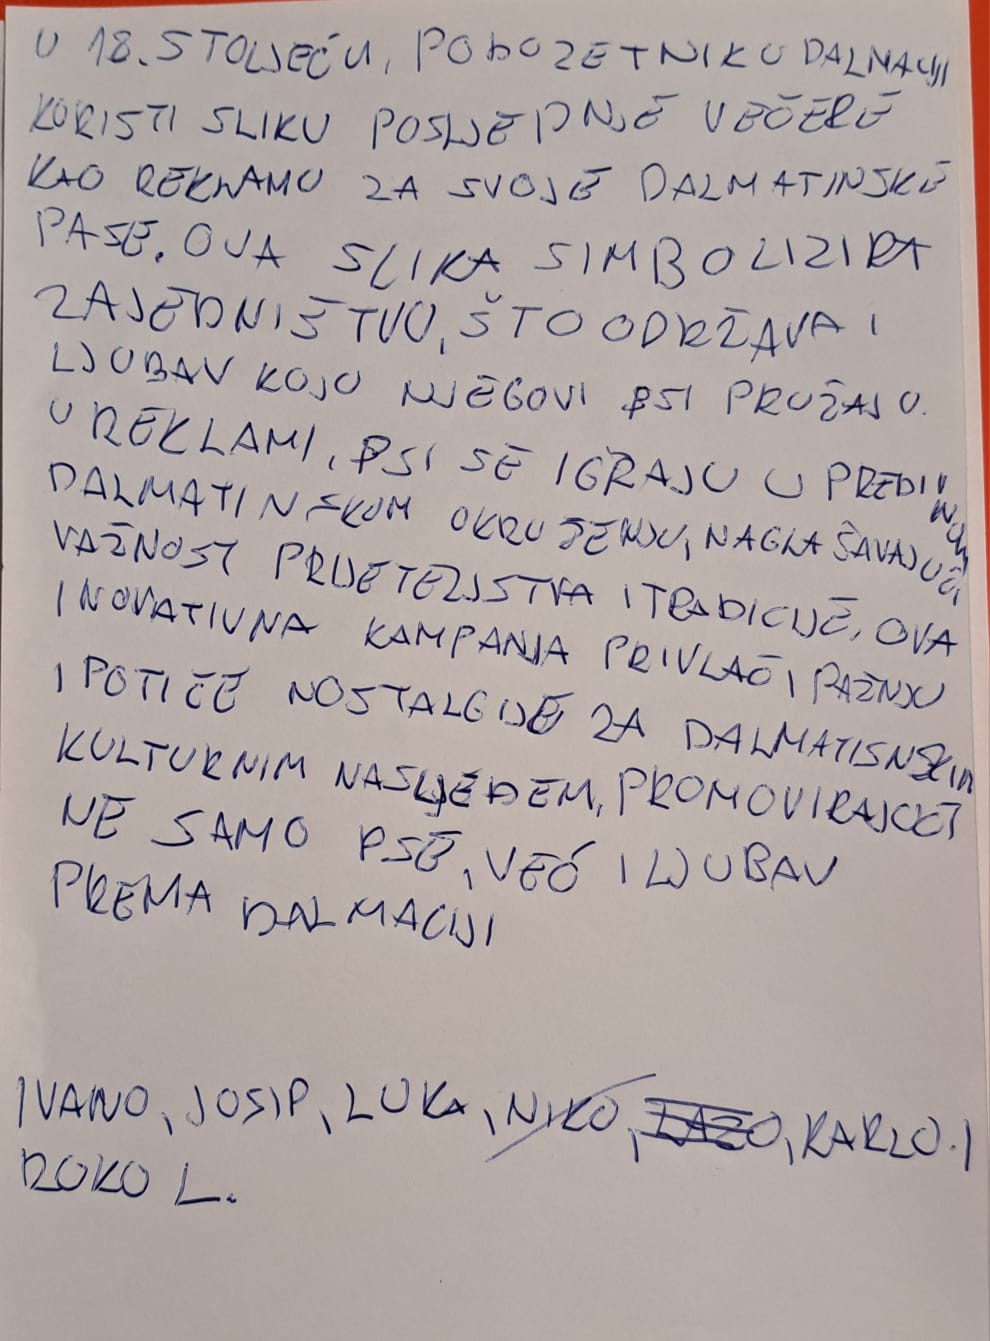 U 18. STOLJEĆU, PODOZETNIK U DALMACIJI
KORISTI SLIKU POSLJEDNJE VEČERE
KAO REKLAMU ZA SVOJE DALMATINSKE
PASE. OVA SLIKA SIMBOLIZIRA
ZAJEDNIŠTVO, ŠTO ODRŽAVA I
LJUBAV KOJU NJEGOVI PSI PRUŽAJU.
U REKLAMI, PSI SE IGRAJU U PREDIVNOM
DALMATINSKOM OKRUŽENJU, NAGLAŠAVAJUĆI
VAŽNOST PRIJETELJSTVA I TRADICIJE, OVA
INOVATIVNA KAMPANJA PRIVLAČI PAŽNJU
I POTIČE NOSTALGIJE ZA DALMATISNSKIM
KULTURNIM NASLJEĐEM, PROMOVIRAJUĆI
NE SAMO PSE, VEĆ I LJUBAV
PREMA DALMACIJI
IVANO, JOSIP, LUKA, NIKO, KARLO. I
ROKO L.